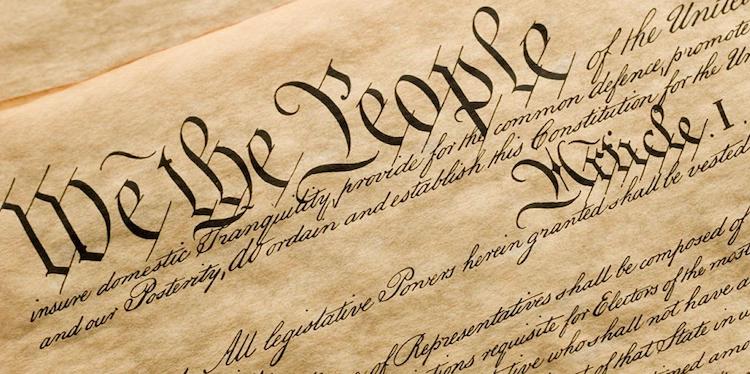 We the People of the United
insure domestic Tranquility, provide for the common defence, promote
and our Posterity, do ordain and establish this Constitution for the Un
Article. I.
All legislative Powers herein granted shall be vested
of Representatives shall be composed of
requisite for Electors of the most
who shall not have a
of that State in w